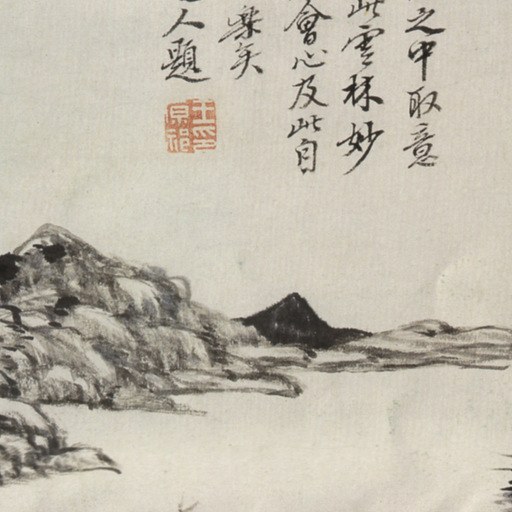 之中取意
此雲林妙
會心及此自
樂矣
人題
王原祁印